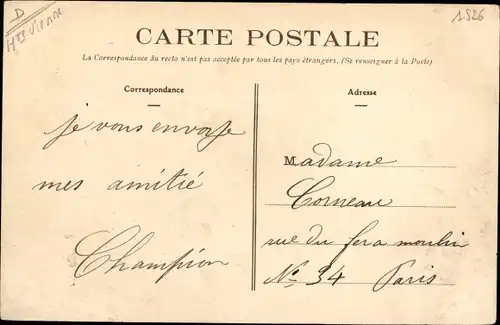 D
Hte Vienne
1926
CARTE POSTALE
La Correspondance du recto n'est pas acceptée par tous les pays étrangers. (Se renseigner à la Poste)
Correspondance
je vous envoye
mes amitié
Champion
Adresse
Madame
Corneau
rue du fer a moulin
No 34 Paris